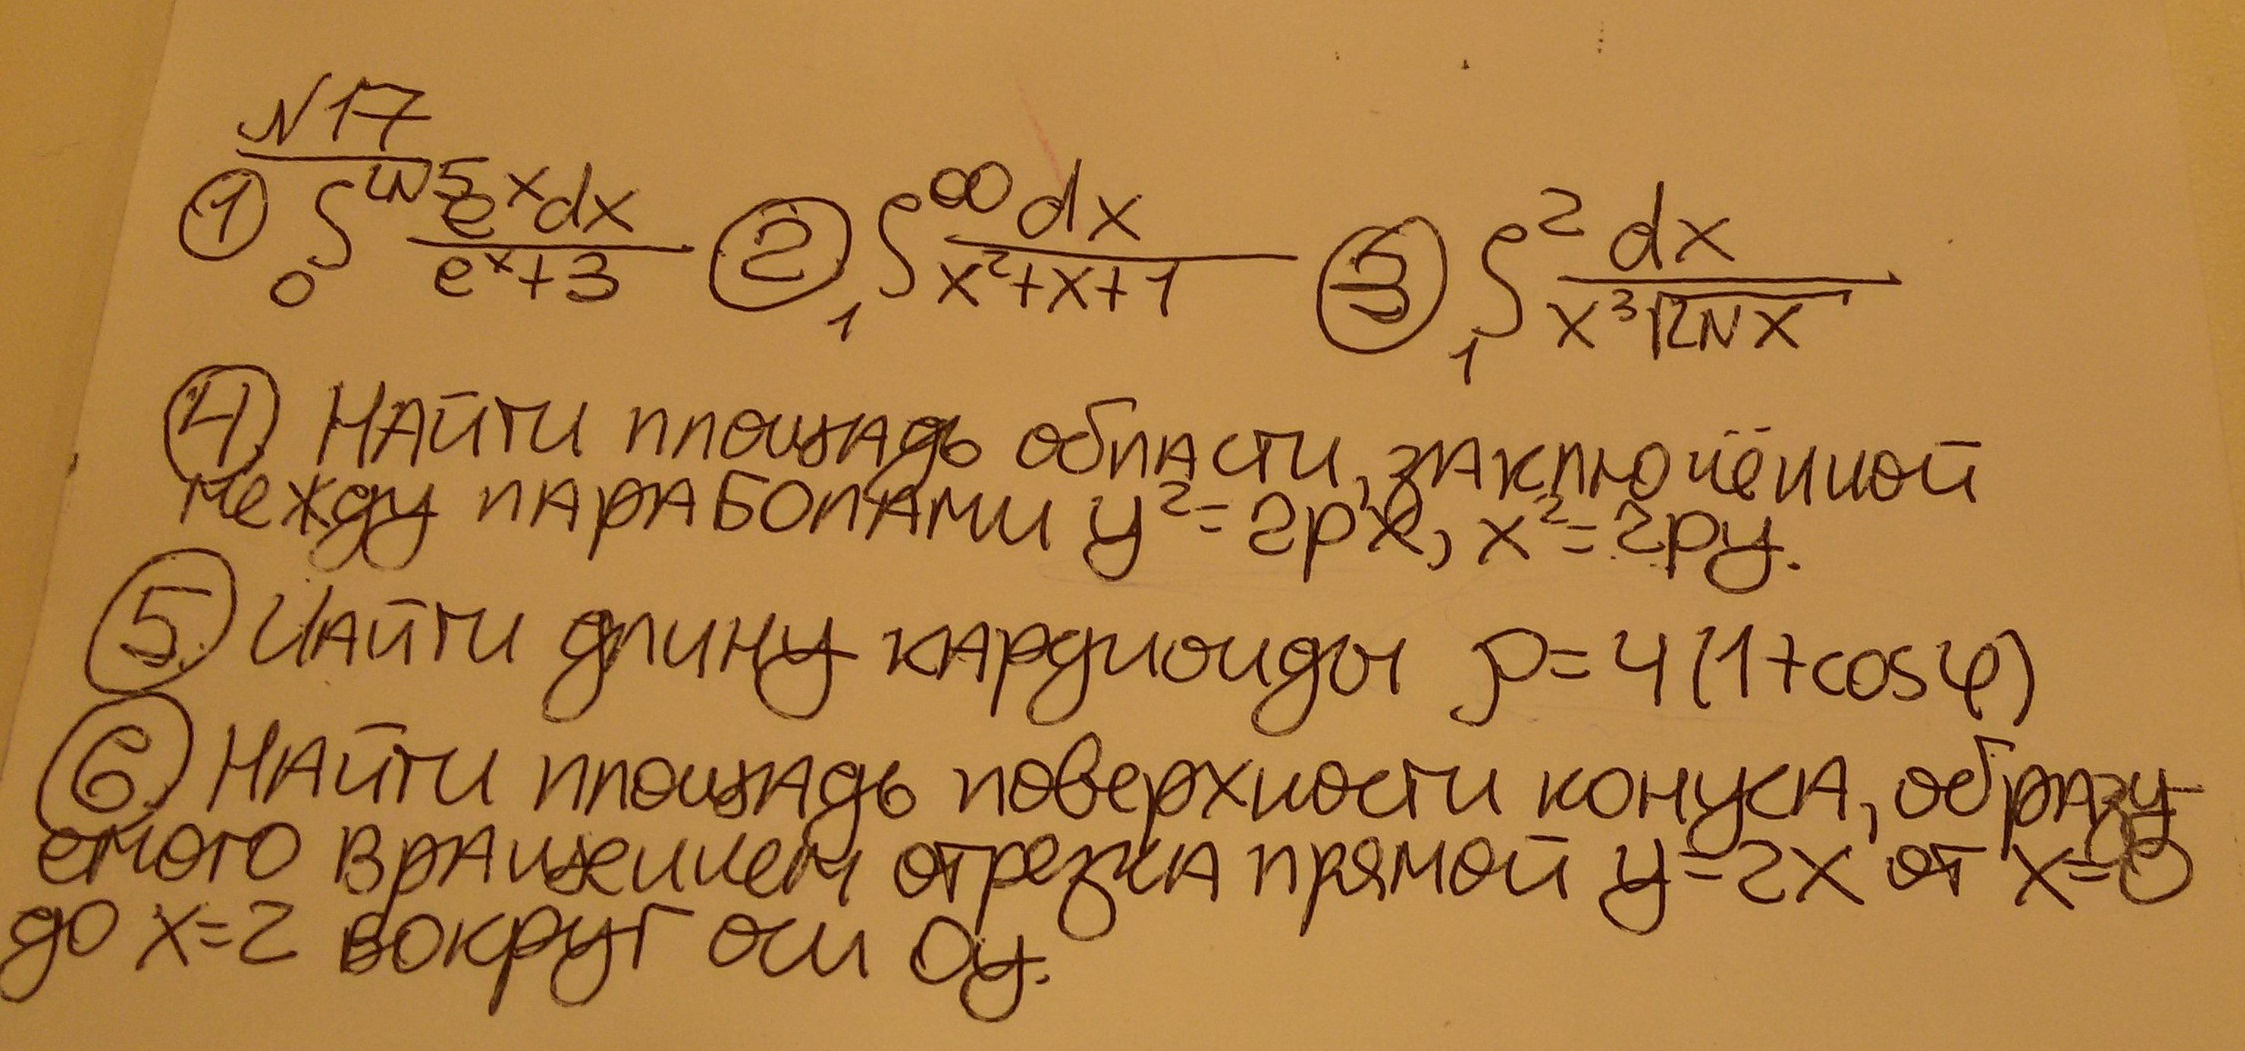 N17
① ∫₀^{ln5} e^x dx / (e^x+3) ② ∫₁^∞ dx / (x²+x+1) ③ ∫₁² dx / (x³√ln x)
④ Найти площадь области, заключённой
между параболами y²=2px, x²=2py.
⑤ Найти длину кардиоиды ρ=4(1+cosφ)
⑥ Найти площадь поверхности конуса, образу
емого вращением отрезка прямой y=2x от x=0
до x=2 вокруг оси Oy.